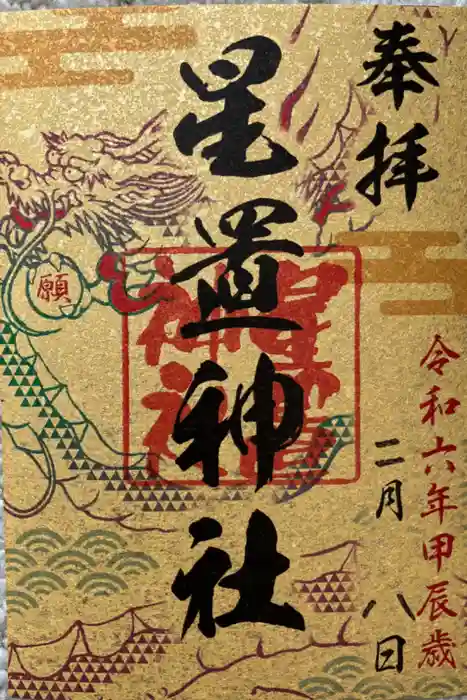 奉拝
令和六年甲辰歳
二月八日
星置神社
星置神社
願